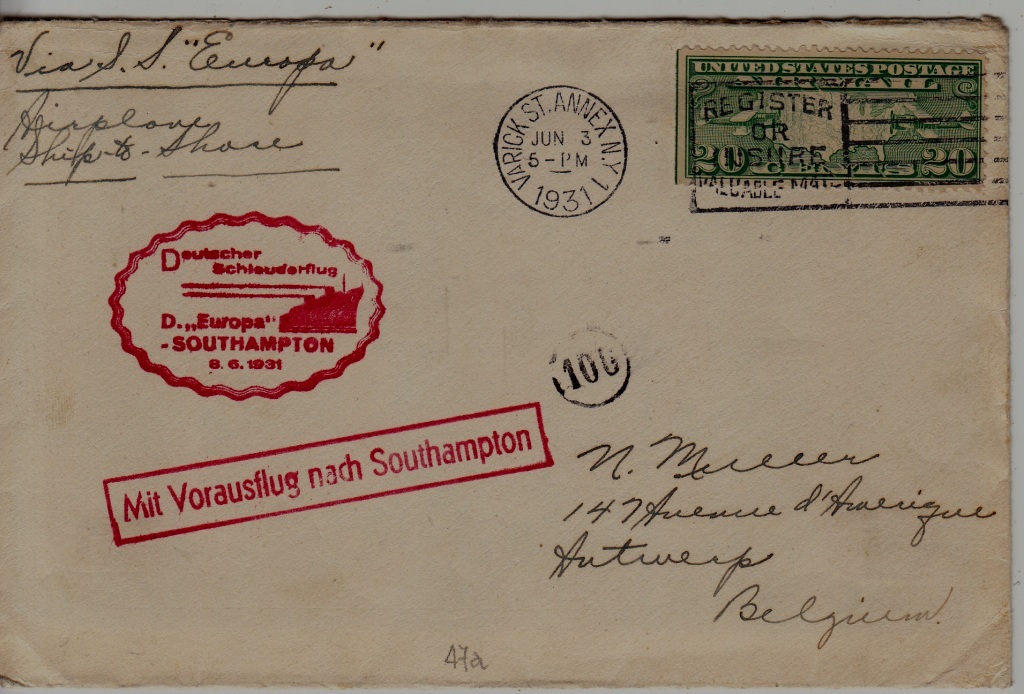 Via S. S. "Europa"
Airplane
Ship-to-Shore
VARICK ST. ANNEX N.Y. 1
JUN 3
5-PM
1931
UNITED STATES POSTAGE
AIR MAIL
20 CENTS 20
REGISTER
OR
INSURE
VALUABLE MAIL
Deutscher
Schleuderflug
D. „Europa"
-SOUTHAMPTON
8.6.1931
100
Mit Vorausflug nach Southampton
N. Mueller
147 Avenue d'Amerique
Antwerp
Belgium.
47a